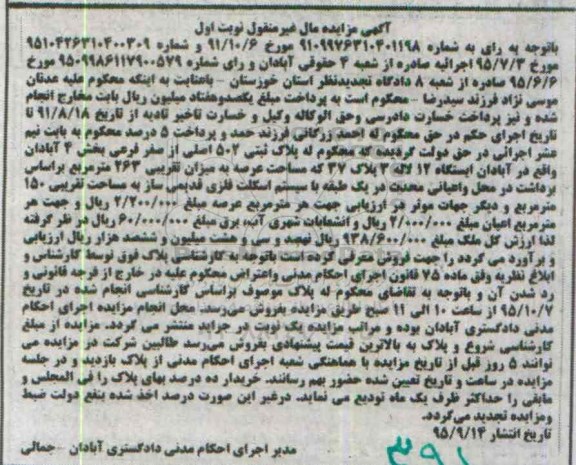 آگهی مزایده مال غیرمنقول نوبت اول
باتوجه به رای به شماره ۹۱۰۹۹۷۶۳۱۰۴۰۱۱۹۸ مورخ ۹۱/۱۰/۶ و شماره ۹۵۱۰۴۲۶۳۱۰۴۰۰۳۰۹
مورخ ۹۵/۷/۳ اجرائیه صادره از شعبه ۴ حقوقی آبادان و رای شماره ۹۵۰۹۹۸۶۱۱۷۹۰۰۵۷۹ مورخ
۹۵/۶/۶ صادره از شعبه ۸ دادگاه تجدیدنظر استان خوزستان - باعنایت به اینکه محکوم علیه عدنان
موسی نژاد فرزند سیدرضا - محکوم است به پرداخت مبلغ یکصدوهفتاد میلیون ریال بابت مخارج انجام
شده و نیز پرداخت خسارت دادرسی وحق الوکاله وکیل و خسارت تاخیر تادیه از تاریخ ۹۱/۸/۱۸ تا
تاریخ اجرای حکم در حق محکوم له احمد زرگانی فرزند حمد و پرداخت ۵ درصد محکوم به بابت نیم
عشر اجرائی در حق دولت گردیده که محکوم له پلاک ثبتی ۵۰۲ اصلی از صفر فرعی بخش ۴ آبادان
واقع در آبادان ایستگاه ۱۲ لاله ۳ پلاک ۳۷ که مساحت عرصه به میزان تقریبی ۲۶۳ مترمربع براساس
برداشت در محل واعیانی محدث در یک طبقه با سیستم اسکلت فلزی قدیمی ساز به مساحت تقریبی ۱۵۰
مترمربع و دیگر جهات موثر در ارزیابی جهت هر مترمربع عرصه مبلغ ۲/۲۰۰/۰۰۰ ریال و جهت هر
مترمربع اعیان مبلغ ۲/۰۰۰/۰۰۰ ریال و انشعابات شهری آب، برق مبلغ ۶۰/۰۰۰/۰۰۰ ریال در نظر گرفته
و لذا ارزش کل ملک مبلغ ۹۳۸/۶۰۰/۰۰۰ ریال نهصد و سی و هشت میلیون و ششصد هزار ریال ارزیابی
و برآورد می گردد را جهت فروش معرفی کرده است باتوجه به کارشناسی پلاک فوق توسط کارشناس و
ابلاغ نظریه وفق ماده ۷۵ قانون اجرای احکام مدنی واعتراض محکوم علیه در خارج از فرجه قانونی و
رد شدن آن و باتوجه به تقاضای محکوم له پلاک موصوف براساس کارشناسی انجام شده در تاریخ
۹۵/۱۰/۷ از ساعت ۱۰ الی ۱۱ صبح طریق مزایده بفروش می‌رسد. محل انجام مزایده اجرای احکام
مدنی دادگستری آبادان بوده و مراتب مزایده یک نوبت در جراید منتشر می گردد. مزایده از مبلغ
کارشناسی شروع و پلاک به بالاترین قیمت پیشنهادی بفروش می‌رسد طالبین شرکت در مزایده می
توانند ۵ روز قبل از تاریخ مزایده با هماهنگی شعبه اجرای احکام مدنی از پلاک بازدید و در جلسه
مزایده در ساعت و تاریخ تعیین شده حضور بهم رسانند. خریدار ده درصد بهای پلاک را فی المجلس و
مابقی را حداکثر ظرف یک ماه تودیع می نماید. درغیر این صورت درصد اخذ شده بنفع دولت ضبط
ومزایده تجدید می‌گردد.
تاریخ انتشار ۹۵/۹/۱۴
مدیر اجرای احکام مدنی دادگستری آبادان - جمالی
۳۹۱